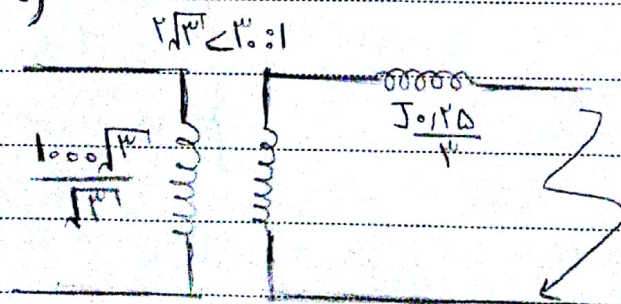 ۲√۳ <۳۰:۱
۱۰۰۰√۳ / √۳
J۰٫۲۵ / ۳